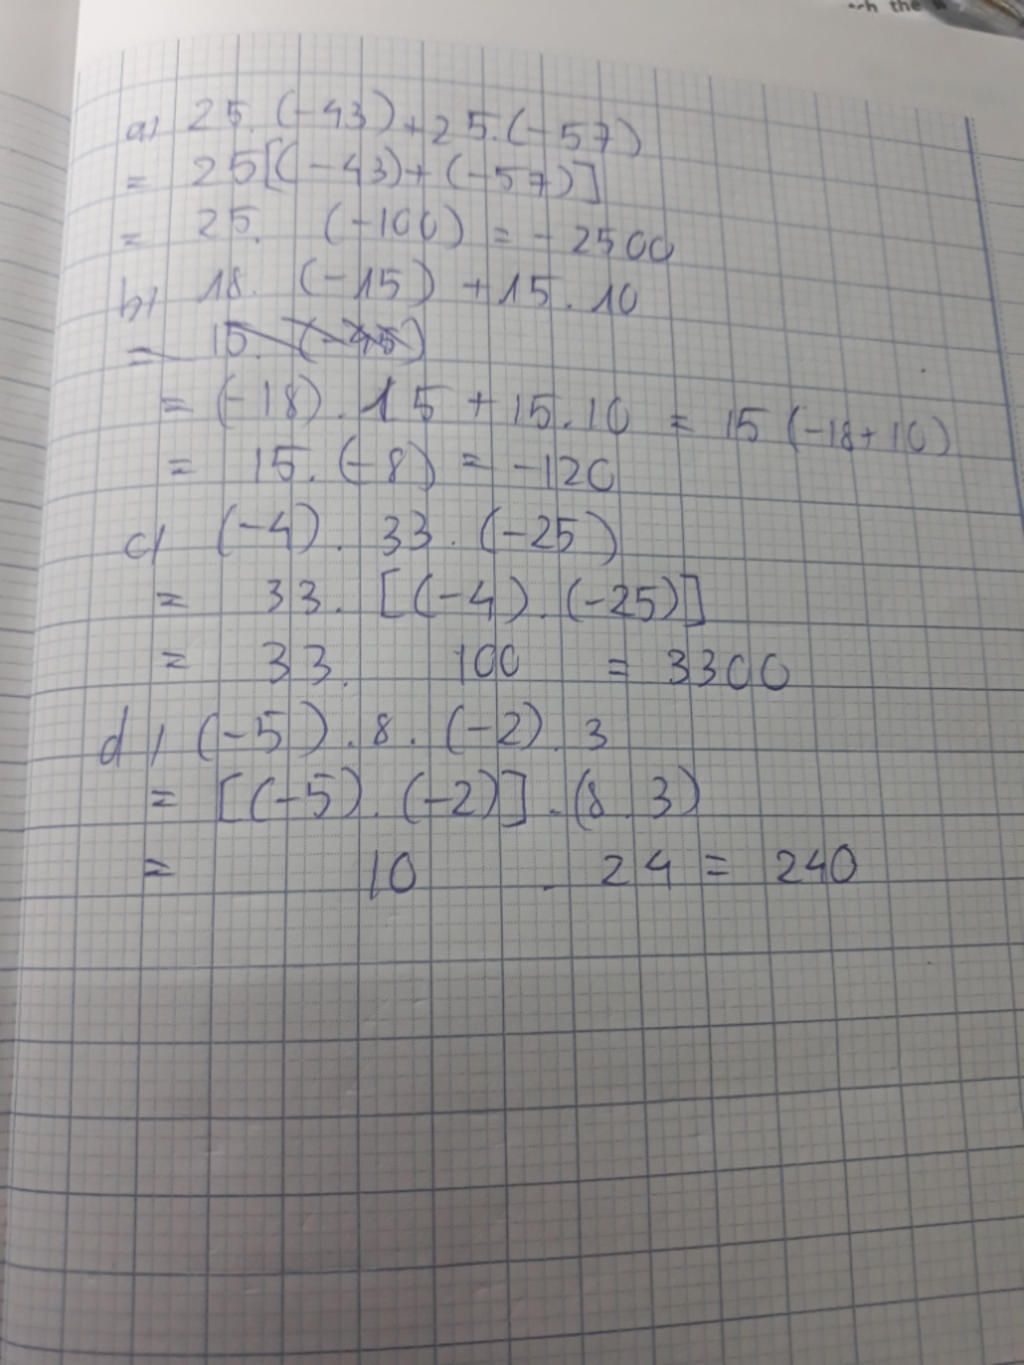 ch the
a) 25. (-43) + 25. (-57)
= 25[(-43)+(-57)]
= 25. (-100) = -2500
b) 18. (-15) + 15.10
= 15.
= (-18). 15 + 15.10 = 15 (-18+10)
= 15. (-8) = -120
c) (-4). 33. (-25)
= 33. [(-4). (-25)]
= 33. 100 = 3300
d) (-5). 8. (-2). 3
= [(-5). (-2)]. (8. 3)
= 10 . 24 = 240